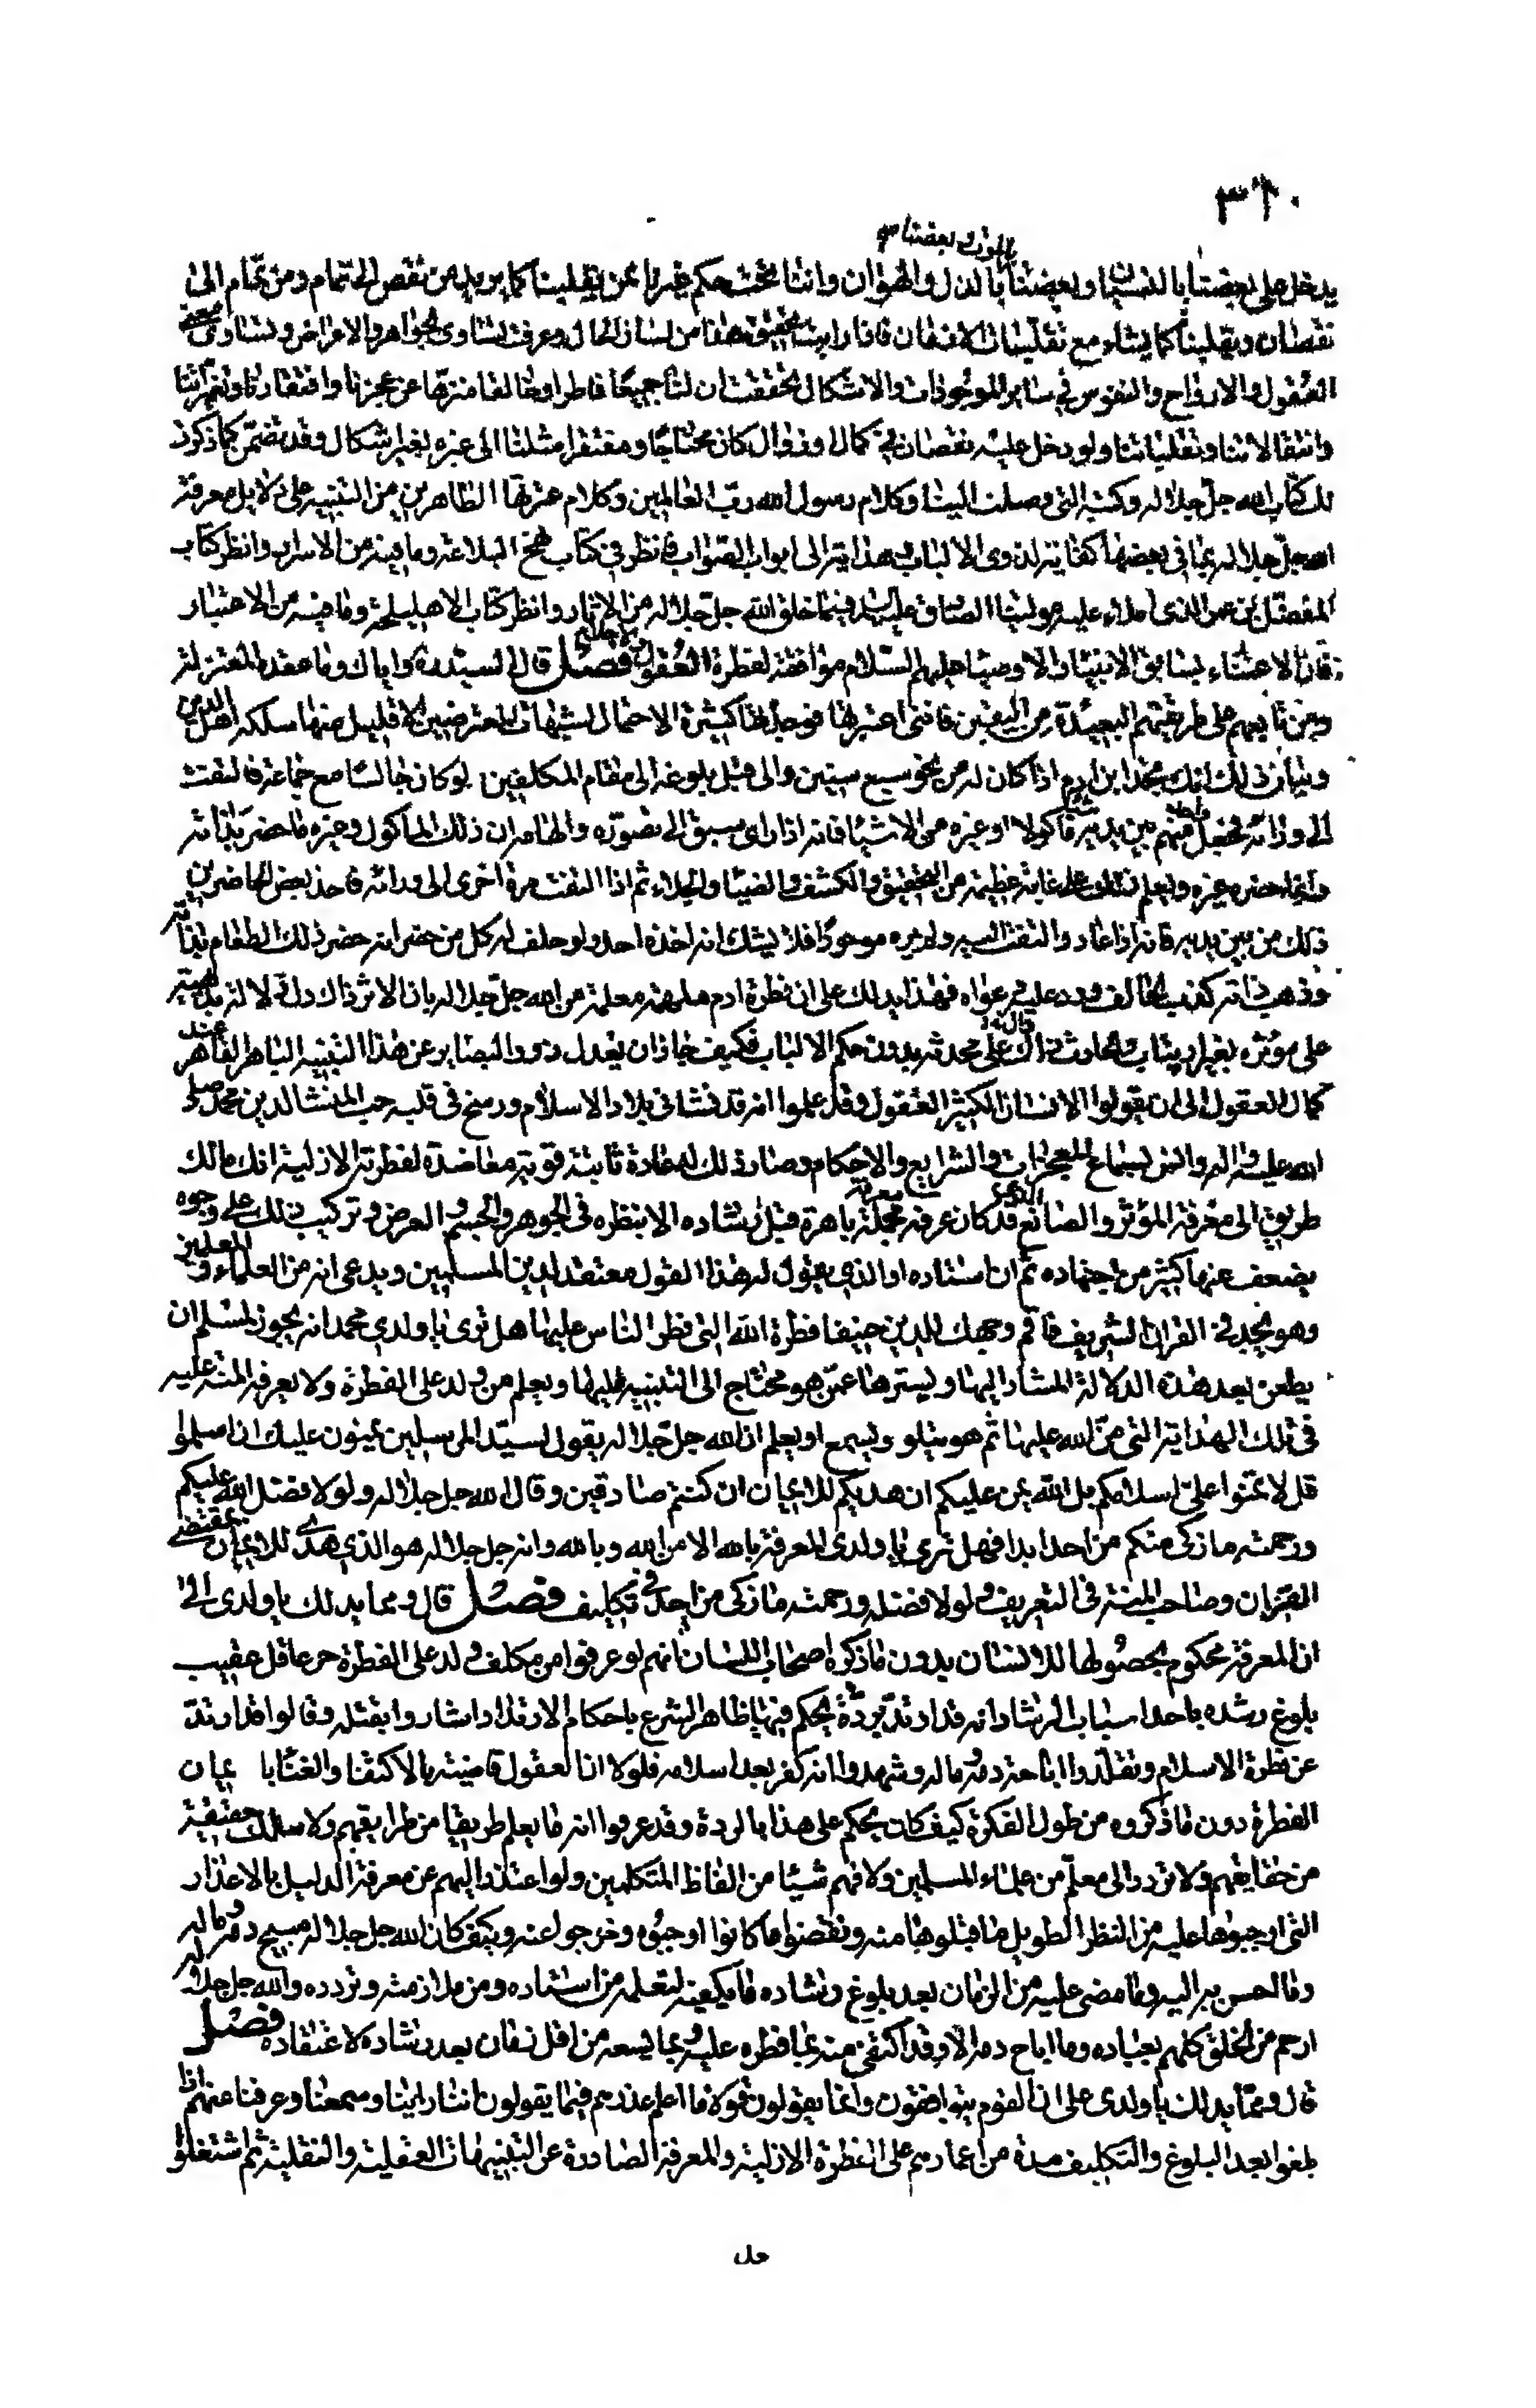 ٣٦٠
بالموت وبعضنا
يدخل على بعضنا بالنسيان وبعضنا بالذل والهوان واننا تحت حكم غيرنا ممن يقلبنا كما يريد من نقص الى تمام ومن تمام الى
نقصان ويقلبنا كما يشاء مع تقلبات الازمان فاذا رايت تحقيق هذا من لسان الحال وعرفت تساوى الجواهر والاعراض وتساوى معنى
العقول والارواح والنفوس في سائر الموجودات والاشكال تحققت ان لنا جميعا فاطرا وخالقا منزها عن عجزنا وافتقارنا وتغيراتنا
وانتقالاتنا وتقلباتنا ولو دخل عليه نقصان في كمال او زوال كان محتاجا ومفتقرا مثلنا الى غيره بغير اشكال وقد تضمن كما ذكرت
لك كتاب الله جل جلاله وكتبه التى وصلت الينا وكلام رسول الله رب العالمين وكلام عترته الطاهرين من التنبيه على دلايل معرفة
الله جل جلاله بما في بعضها كفاية لذوى الالباب وهداية الى ابواب الصواب فانظر في كتاب نهج البلاغة وما فيه من الاسرار وانظر كتاب
المفضل بن عمر الذى املاه عليه مولينا الصادق عليه السلام فيما خلق الله جل جلاله من الاثار وانظر كتاب الاهليلجة وما فيه من الاعتبار
فان الاعتناء بسابق الانبياء والاوصياء عليهم السلام موافقة لفطرة العقول والاحلام فصل قال السيد ره واياك وما عقد المعتزلة
ومن تابعهم على طريقتهم البعيدة من اليقين فاننى اعتبرتها فوجدتها كثيرة الاحتمال لشبهات المعترضين الا قليل منها سلكه اهل الدين
وبيان ذلك انك تجد ابن ادم اذا كان له من نحو سبع سنين والى قبل بلوغه الى مقام المكلفين لو كان جالسا مع جماعة فالتفت
الى ورائه فجعل واحد منهم بين يديه شيئا ماكولا او غيره من الاشياء فانه اذا راى سبق الى تصوره والهامه ان ذلك الماكول وغيره ما حضر بذاته
وانما احضره غيره ويعلم ذلك على غاية عظيمة من التحقيق والكشف والضياء والجلاء ثم اذا التفت مرة اخرى الى ورائه فاخذ بعض الحاضرين
ذلك من بين يديه فانه اذا عاد والتفت اليه ولم يره موجودا فلا يشك انه اخذه احد ولو حلف له كل من حضر انه حضر ذلك الطعام بذاته
وذهب بذاته كذب الحالف ورد عليه دعواه فهذا يدلك على ان فطرة ادم ملهمة معلمة من الله جل جلاله بان الاثر دال دلالة بديهية
على مؤثره بغير ارتياب والحادث دالة على محدثه بدون حكم الالباب فكيف جاز ان يعدل ذوو البصاير عن هذا التنبيه الباهر القاهر عند
كمال العقول الى ان يقولوا لانسان كبير العقول وقد علموا انه قد نشا في بلاد الاسلام ورسخ في قلبه حب المنشا لدين محمد صلى
الله عليه واله وانس بسماع المعجزات والشرايع والاحكام وصار ذلك له عادة ثابتة قوية معاضدة لفطرته الازلية انك مالك
طريق الى معرفة المؤثر والصانع الذى قد كان عرفه معرفة مجملة باهرة قبل رشاده الا بنظره في الجوهر والجسم والعرض وتركيب ذلك على وجوه
يضعف عنها كثير من اجتهاده ثم ان استاده او الذى يقول له هذا القول معتقد لدين المسلمين ويدعى انه من العلماء والمعلمين
وهو يجد في القران الشريف فاقم وجهك للدين حنيفا فطرة الله التى فطر الناس عليها هل ترى يا ولدي محمد انه يجوز لمسلم ان
يطعن بعد هذه الدلالة المشار اليها ويسترها عمن هو محتاج الى التنبيه عليها ويعلم من ولد على الفطرة ولا يعرفه المنة عليه
في تلك الهداية التى من الله عليها ثم هو يتلو ويسمع او يعلم ان الله جل جلاله يقول لسيد المرسلين يمنون عليك ان اسلموا
قل لا تمنوا على اسلامكم بل الله يمن عليكم ان هديكم للايمان ان كنتم صادقين وقال الله جل جلاله ولولا فضل الله عليكم
ورحمته ما زكى منكم من احد ابدا فهل ترى يا ولدى المعرفة بالله الا من الله وبالله وانه جل جلاله هو الذى هدى للايمان بمقتضى
القران وصاحب المنة في التعريف ولولا فضله ورحمته ما زكى من احد في تكليف فصل قال ومما يدلك يا ولدى الى
ان المعرفة محكوم بحصولها للانسان بدون ما ذكره اصحاب اللسان انهم لو عرفوا من مكلف ولد على الفطرة حر عاقل عقيب
بلوغ رشده باحد اسباب الرشاد انه قد ارتد بردة يحكم فيها ظاهر الشرع باحكام الارتداد اشاروا بقتله وقالوا قد ارتد
عن فطرة الاسلام وتقلدوا اباحة دمه وماله وشهدوا انه كفر بعد اسلامه فلولا ان العقول قاضية بالاكتفاء والغناء بايمان
الفطرة دون ما ذكروه من طول الفكرة كيف كان يحكم على هذا بالردة وقد عرفوا انه ما يعلم طريقا من طرايقهم ولا سلك حقيقة
من حقايقهم ولا تردد الى معلم من علماء المسلمين ولا فهم شيئا من الفاظ المتكلمين ولو اعتذر اليهم عن معرفة الدليل بالاعذار
التى اوجبوها عليه من النظر الطويل ما قبلوها منه ونقضوا ما كانوا اوجبوه وخرجوا عنه وكيف كان الله جل جلاله مبيح دمه وماله
وما احسن به اليه وما مضى عليه من الزمان بعد بلوغ رشاده ما يكفيه لتعلمه من استاده ومن ملازمته وتردده والله جل جلاله
ارحم من الخلق كلهم بعباده وما اباح دمه الا وقد اكتفى منه بما فطره عليه وبما يسعه من اقل زمان بعد رشاده لاعتقاده فصل
قال ومما يدلك يا ولدى على ان القوم يتواضعون وانما يقولون قولا ما اعلم عذرهم فيما يقولون اننا راينا وسمعنا وعرفنا عنهم اذا
بلغوا بعد البلوغ والتكليف مدة من اعمارهم على الفطرة الازلية والمعرفة الصادرة عن التنبيهات العقلية والنقلية ثم اشتغلوا
حل